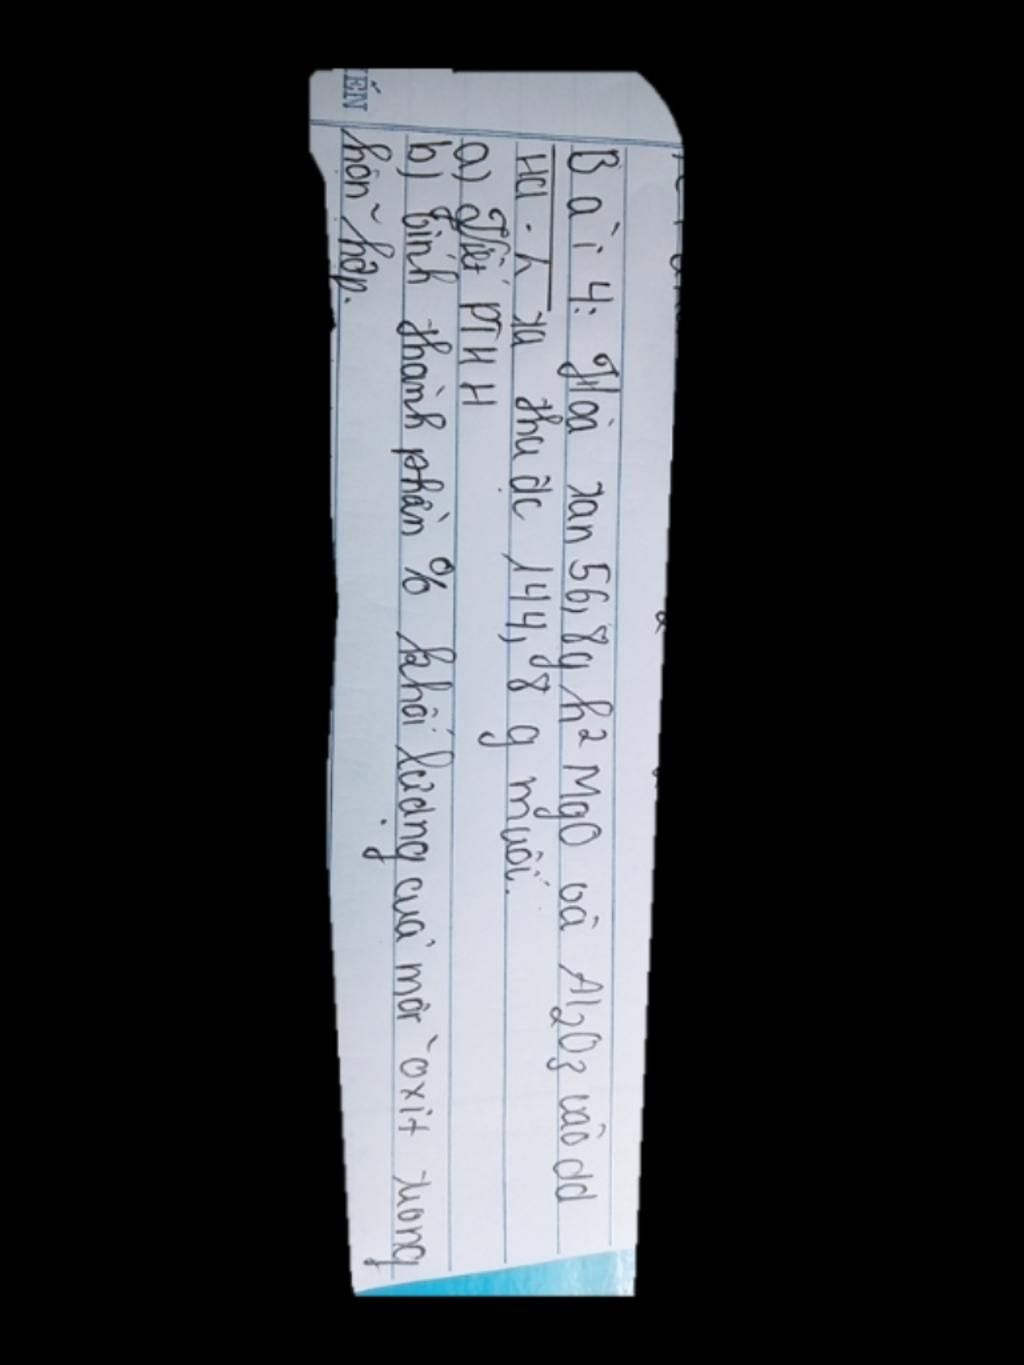 IẾN
Bài 4: Hoà tan 56,8g h² MgO và Al₂O₃ vào dd
HCl. ta thu đc 144,8 g muối.
a) Viết PTHH
b) Tính thành phần % khối lượng của mỗi oxit trong
hỗn hợp.